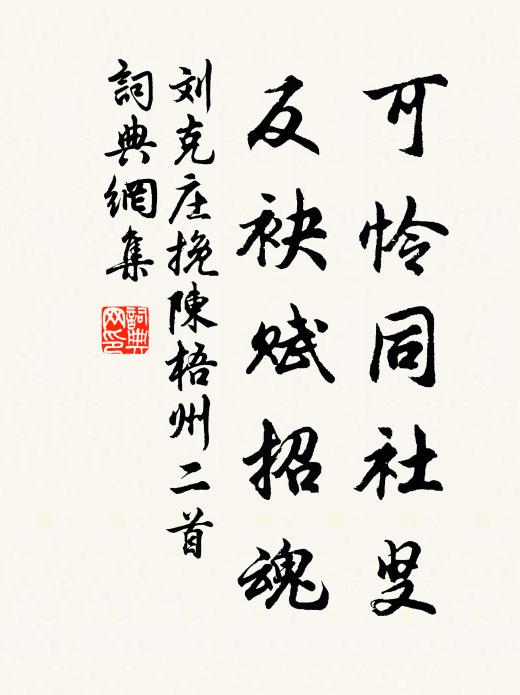 可怜同社叟
反袂赋招魂
刘克庄挽陳梧州二首
詞典網集
詞典网印